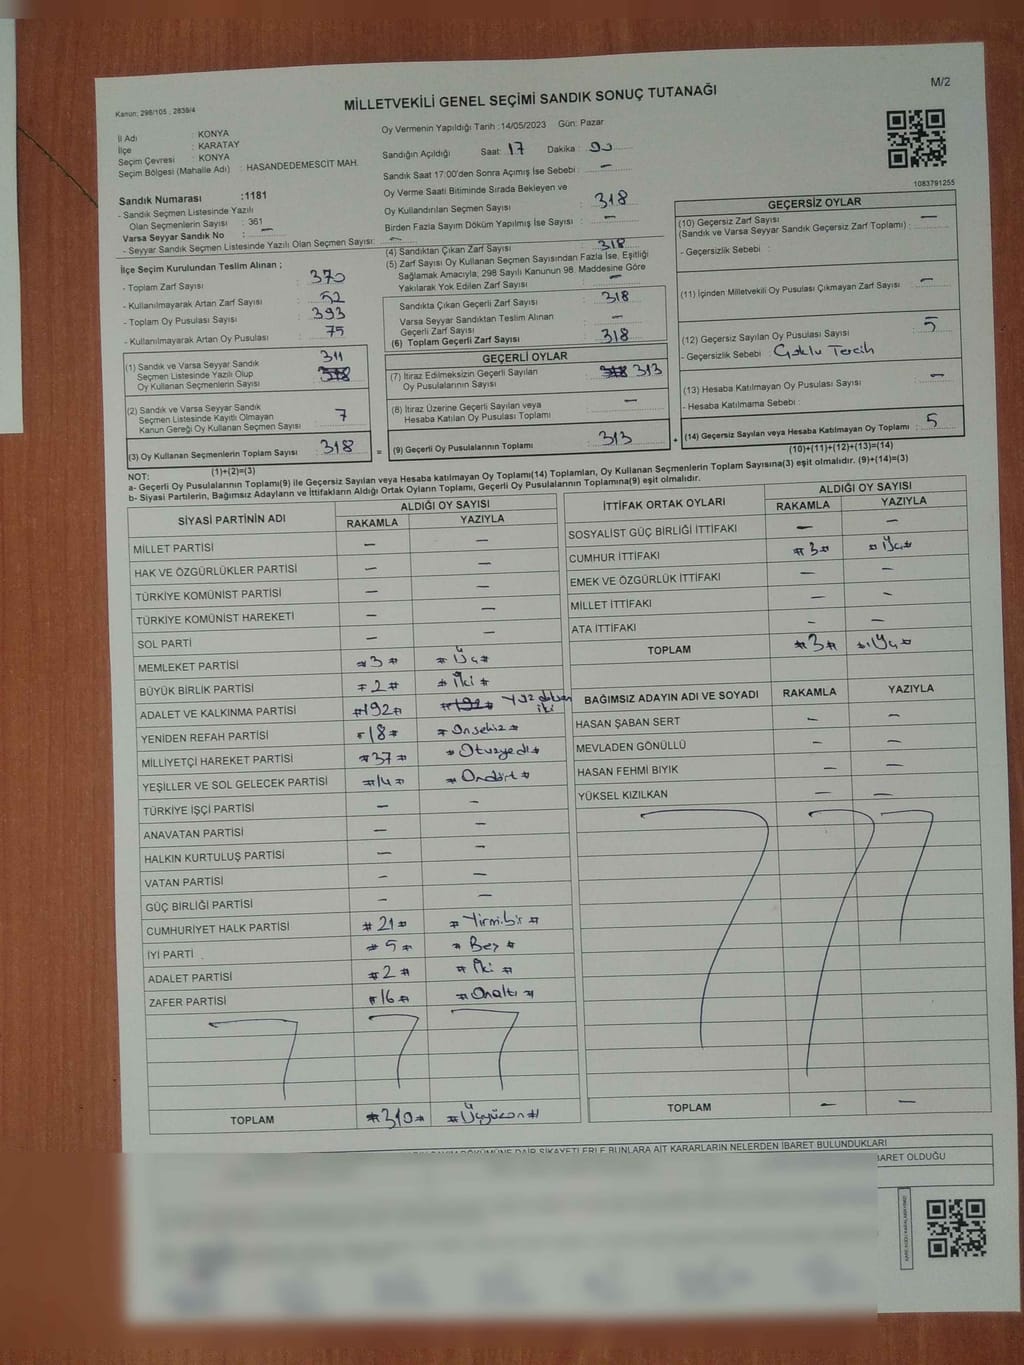 M/2
Kanun: 298/105 , 2839/4
MİLLETVEKİLİ GENEL SEÇİMİ SANDIK SONUÇ TUTANAĞI
İl Adı : KONYA
İlçe : KARATAY
Seçim Çevresi : KONYA
Seçim Bölgesi (Mahalle Adı) : HASANDEDEMESCİT MAH.
Sandık Numarası :1181
- Sandık Seçmen Listesinde Yazılı
Olan Seçmenlerin Sayısı : 361
Varsa Seyyar Sandık No : -
- Seyyar Sandık Seçmen Listesinde Yazılı Olan Seçmen Sayısı: -
Oy Vermenin Yapıldığı Tarih :14/05/2023 Gün: Pazar
Sandığın Açıldığı Saat: 17 Dakika :
Sandık Saat 17:00'den Sonra Açımış İse Sebebi : -
Oy Verme Saati Bitiminde Sırada Bekleyen ve
Oy Kullandırılan Seçmen Sayısı : 318
Birden Fazla Sayım Döküm Yapılmış İse Sayısı : -
1083791255
İlçe Seçim Kurulundan Teslim Alınan ;
- Toplam Zarf Sayısı : 370
- Kullanılmayarak Artan Zarf Sayısı : 52
- Toplam Oy Pusulası Sayısı : 393
- Kullanılmayarak Artan Oy Pusulası : 75
(1) Sandık ve Varsa Seyyar Sandık
Seçmen Listesinde Yazılı Olup
Oy Kullanan Seçmenlerin Sayısı : 311
(2) Sandık ve Varsa Seyyar Sandık
Seçmen Listesinde Kayıtlı Olmayan
Kanun Gereği Oy Kullanan Seçmen Sayısı : 7
(3) Oy Kullanan Seçmenlerin Toplam Sayısı : 318
(1)+(2)=(3)
(4) Sandıktan Çıkan Zarf Sayısı : 318
(5) Zarf Sayısı Oy Kullanan Seçmen Sayısından Fazla İse, Eşitliği
Sağlamak Amacıyla; 298 Sayılı Kanunun 98. Maddesine Göre
Yakılarak Yok Edilen Zarf Sayısı : -
Sandıkta Çıkan Geçerli Zarf Sayısı : 318
Varsa Seyyar Sandıktan Teslim Alınan
Geçerli Zarf Sayısı : -
(6) Toplam Geçerli Zarf Sayısı : 318
GEÇERLİ OYLAR
(7) İtiraz Edilmeksizin Geçerli Sayılan
Oy Pusulalarının Sayısı : 318 313
(8) İtiraz Üzerine Geçerli Sayılan veya
Hesaba Katılan Oy Pusulası Toplamı : -
= (9) Geçerli Oy Pusulalarının Toplamı : 313 +
GEÇERSİZ OYLAR
(10) Geçersiz Zarf Sayısı
(Sandık ve Varsa Seyyar Sandık Geçersiz Zarf Toplamı) : -
- Geçersizlik Sebebi :
(11) İçinden Milletvekili Oy Pusulası Çıkmayan Zarf Sayısı : -
(12) Geçersiz Sayılan Oy Pusulası Sayısı : 5
- Geçersizlik Sebebi : Çoklu Tercih
(13) Hesaba Katılmayan Oy Pusulası Sayısı : -
- Hesaba Katılmama Sebebi :
(14) Geçersiz Sayılan veya Hesaba Katılmayan Oy Toplamı : 5
(10)+(11)+(12)+(13)=(14)
NOT:
a- Geçerli Oy Pusulalarının Toplamı(9) ile Geçersiz Sayılan veya Hesaba katılmayan Oy Toplamı(14) Toplamları, Oy Kullanan Seçmenlerin Toplam Sayısına(3) eşit olmalıdır. (9)+(14)=(3)
b- Siyasi Partilerin, Bağımsız Adayların ve İttifakların Aldığı Ortak Oyların Toplamı, Geçerli Oy Pusulalarının Toplamına(9) eşit olmalıdır.
SİYASİ PARTİNİN ADI ALDIĞI OY SAYISI
RAKAMLA YAZIYLA
MİLLET PARTİSİ - -
HAK VE ÖZGÜRLÜKLER PARTİSİ - -
TÜRKİYE KOMÜNİST PARTİSİ - -
TÜRKİYE KOMÜNİST HAREKETİ - -
SOL PARTİ - -
MEMLEKET PARTİSİ #3# #Üç#
BÜYÜK BİRLİK PARTİSİ #2# #İki#
ADALET VE KALKINMA PARTİSİ #192# #192# Yüz doksan iki
YENİDEN REFAH PARTİSİ #18# #Onsekiz#
MİLLİYETÇİ HAREKET PARTİSİ #37# #Otuzyedi#
YEŞİLLER VE SOL GELECEK PARTİSİ #14# #Ondört#
TÜRKİYE İŞÇİ PARTİSİ - -
ANAVATAN PARTİSİ - -
HALKIN KURTULUŞ PARTİSİ - -
VATAN PARTİSİ - -
GÜÇ BİRLİĞİ PARTİSİ - -
CUMHURİYET HALK PARTİSİ #21# #Yirmibir#
İYİ PARTİ #5# #Beş#
ADALET PARTİSİ #2# #İki#
ZAFER PARTİSİ #16# #Onaltı#
TOPLAM #310# #Üçyüzon#
İTTİFAK ORTAK OYLARI ALDIĞI OY SAYISI
RAKAMLA YAZIYLA
SOSYALİST GÜÇ BİRLİĞİ İTTİFAKI - -
CUMHUR İTTİFAKI #3# #Üç#
EMEK VE ÖZGÜRLÜK İTTİFAKI - -
MİLLET İTTİFAKI - -
ATA İTTİFAKI - -
TOPLAM #3# #Üç#
BAĞIMSIZ ADAYIN ADI VE SOYADI RAKAMLA YAZIYLA
HASAN ŞABAN SERT - -
MEVLADEN GÖNÜLLÜ - -
HASAN FEHMİ BIYIK - -
YÜKSEL KIZILKAN - -
TOPLAM - -
DÖKÜMÜNE DAİR ŞİKAYETLERLE BUNLARA AİT KARARLARIN NELERDEN İBARET BULUNDUKLARI
İBARET OLDUĞU